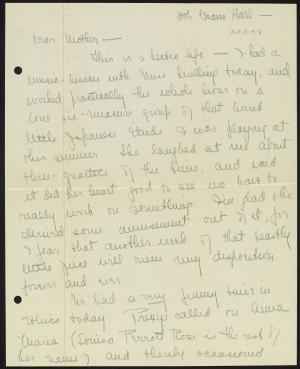 306 Crane Hall —
Dear Mother —
This is a hectic life — I had a
music-lesson with Miss today, and
worked practically the whole hour on a
six-measure group of that
little Japanese I was playing at
this summer. She laughed at me about
three-quarters of the time, and said
it did her heart good to see me have to
really work on something. I'm glad she
derived some amusement out of it, for
I fear that another week of that beastly
little will ruin my disposition
forever and ever.
We had a very funny time in
Ethics today. Prexy called on Anna
Maria (Louisa Perrott Rose is the rest of
her name) and thereby occasioned